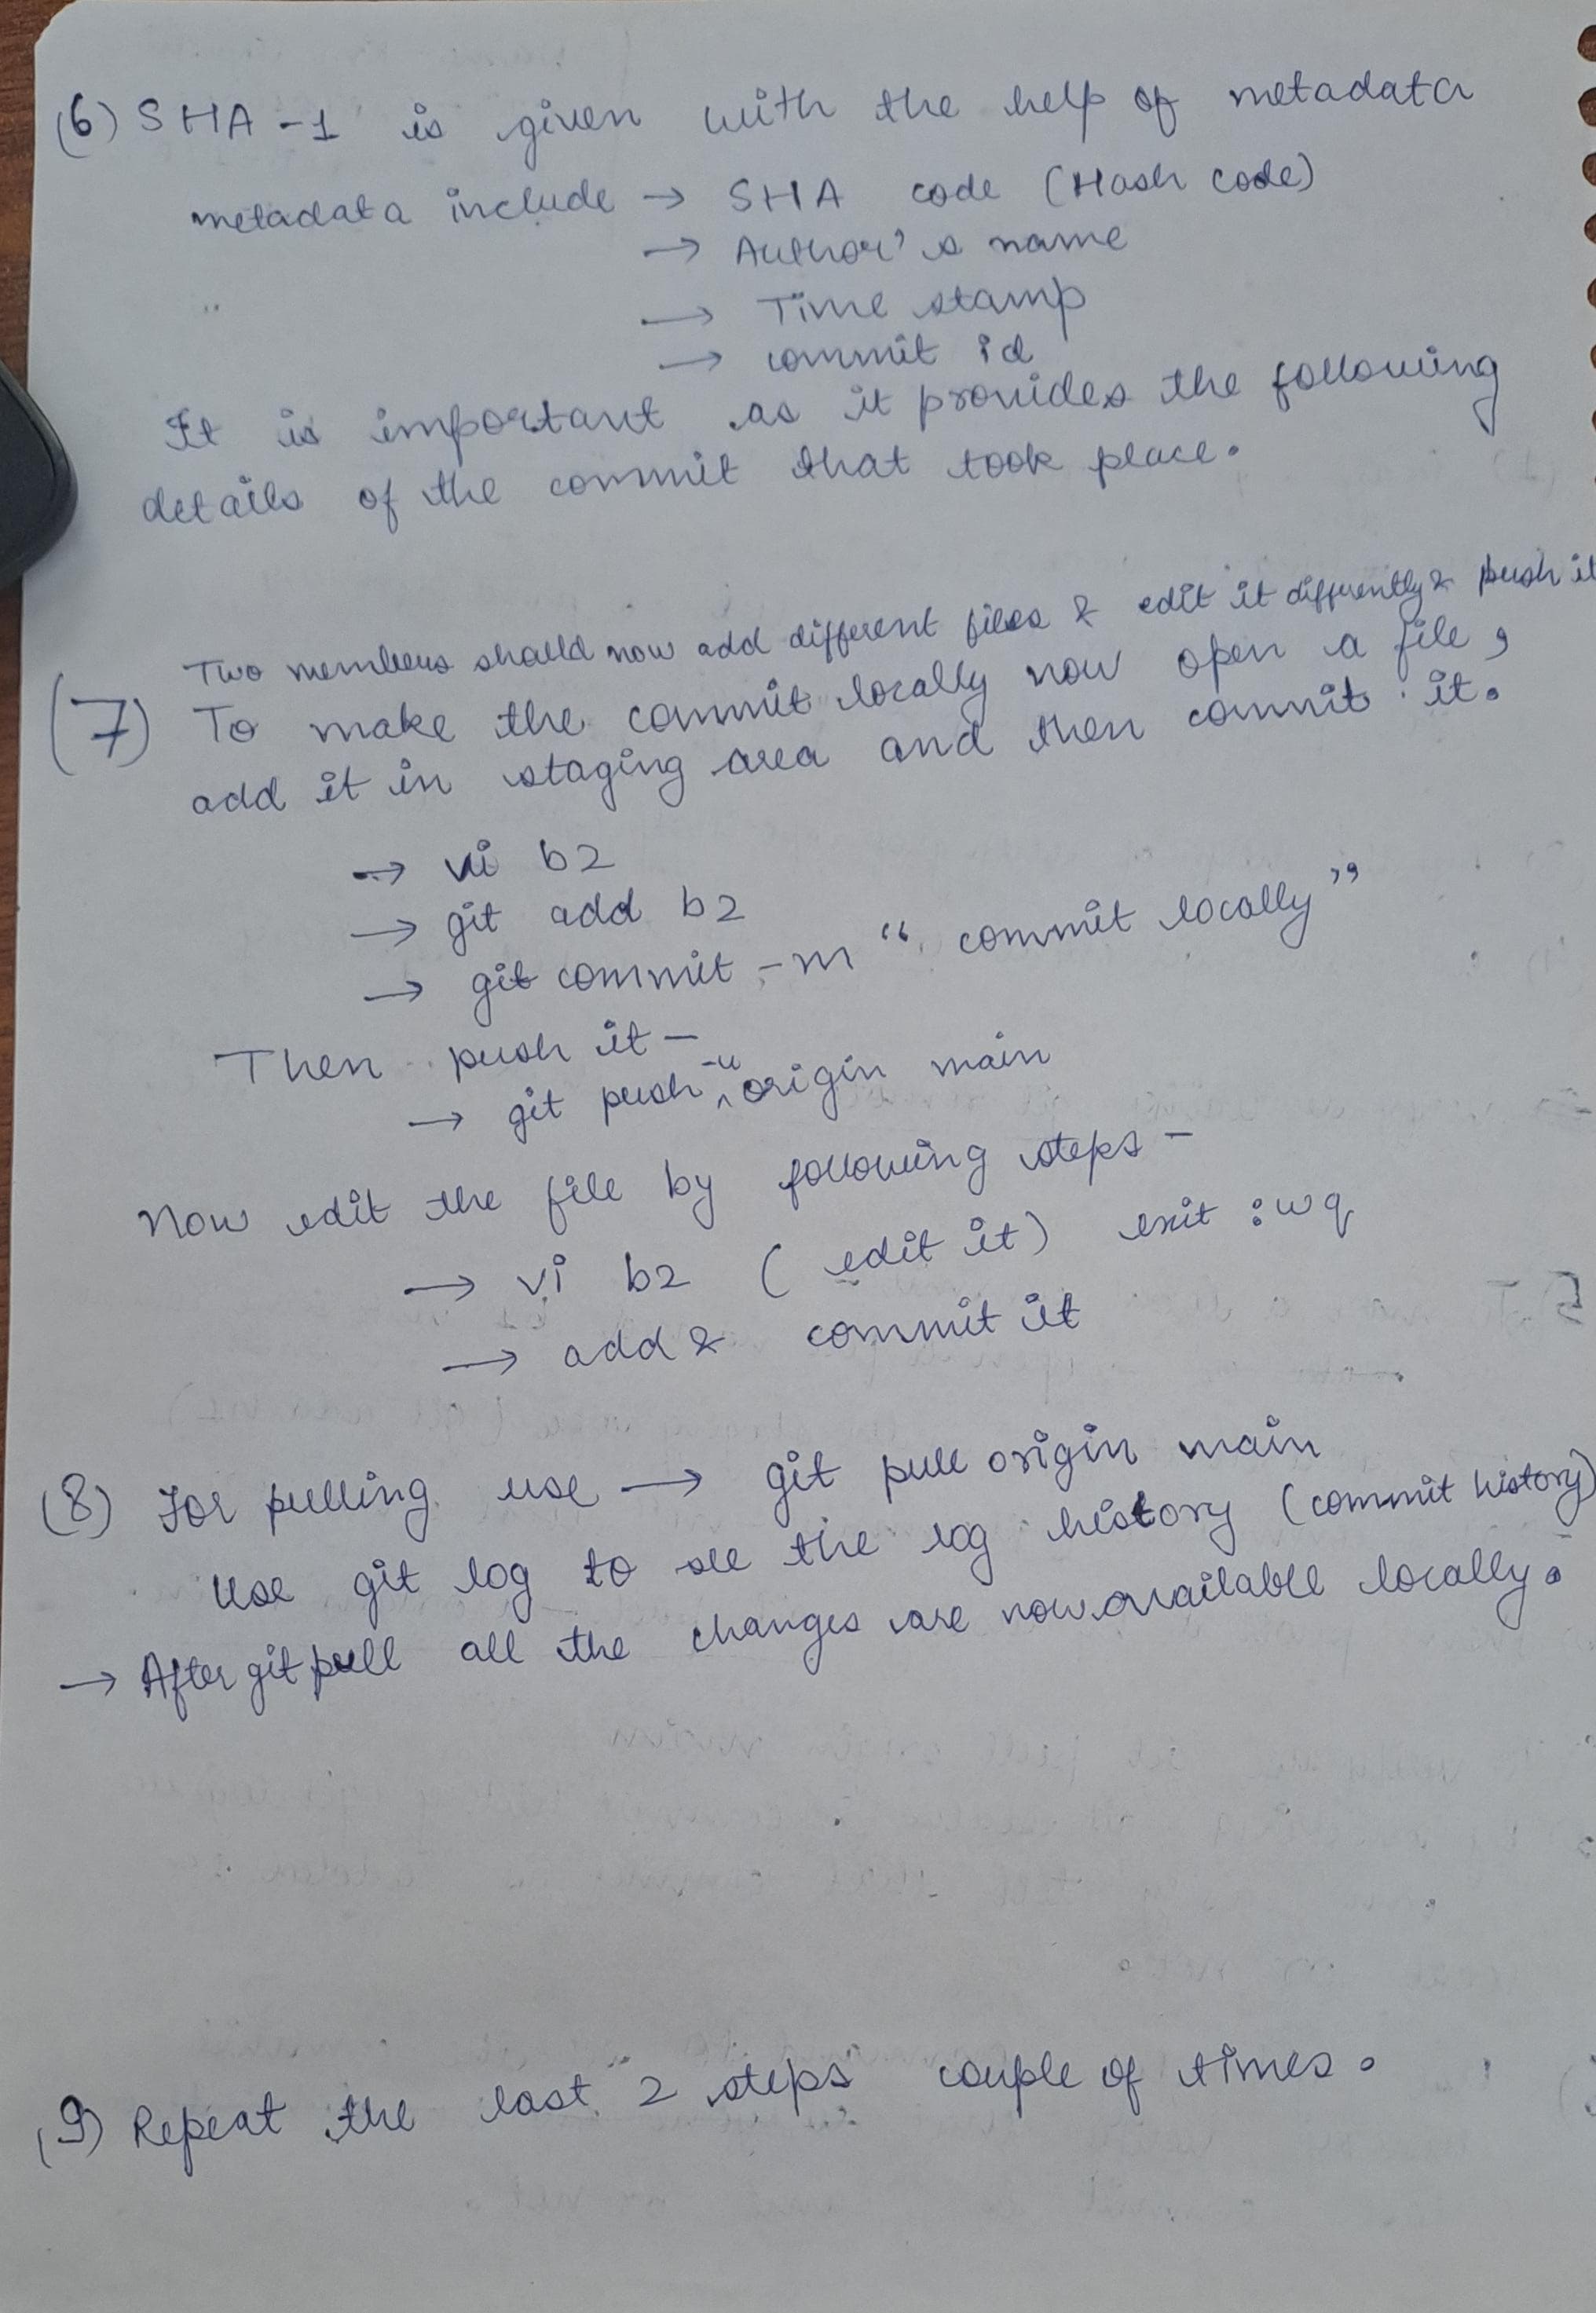 (6) SHA-1 is given with the help of metadata
metadata include → SHA code (Hash code)
→ Author's name
→ Time stamp
→ commit id
It is important as it provides the following
details of the commit that took place.
Two members should now add different files & edit it differently & push it
(7) To make the commit locally now open a file,
add it in staging area and then commit it.
→ vi b2
→ git add b2
→ git commit -m "commit locally"
Then push it -
→ git push -u origin main
Now edit the file by following steps -
→ vi b2 (edit it) exit :wq
→ add & commit it
(8) For pulling use → git pull origin main
Use git log to see the log history (commit history)
→ After git pull all the changes are now available locally.
(9) Repeat the last 2 steps couple of times.